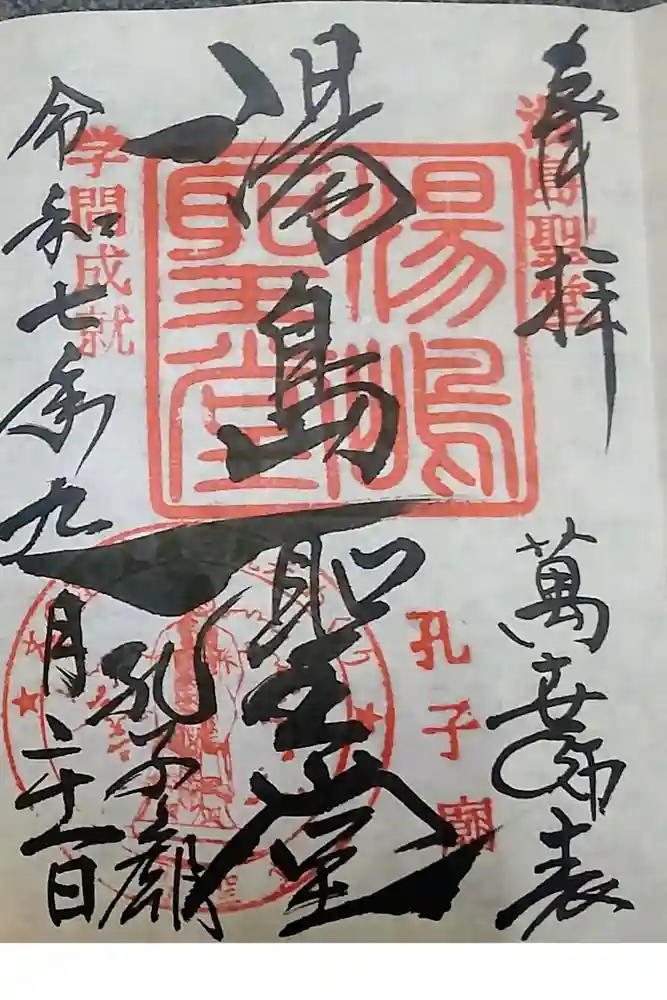 奉拝
湯島聖堂
萬世師表
湯島聖堂
湯島聖堂
孔子廟
孔子廟
学問成就
令和七年九月二十一日